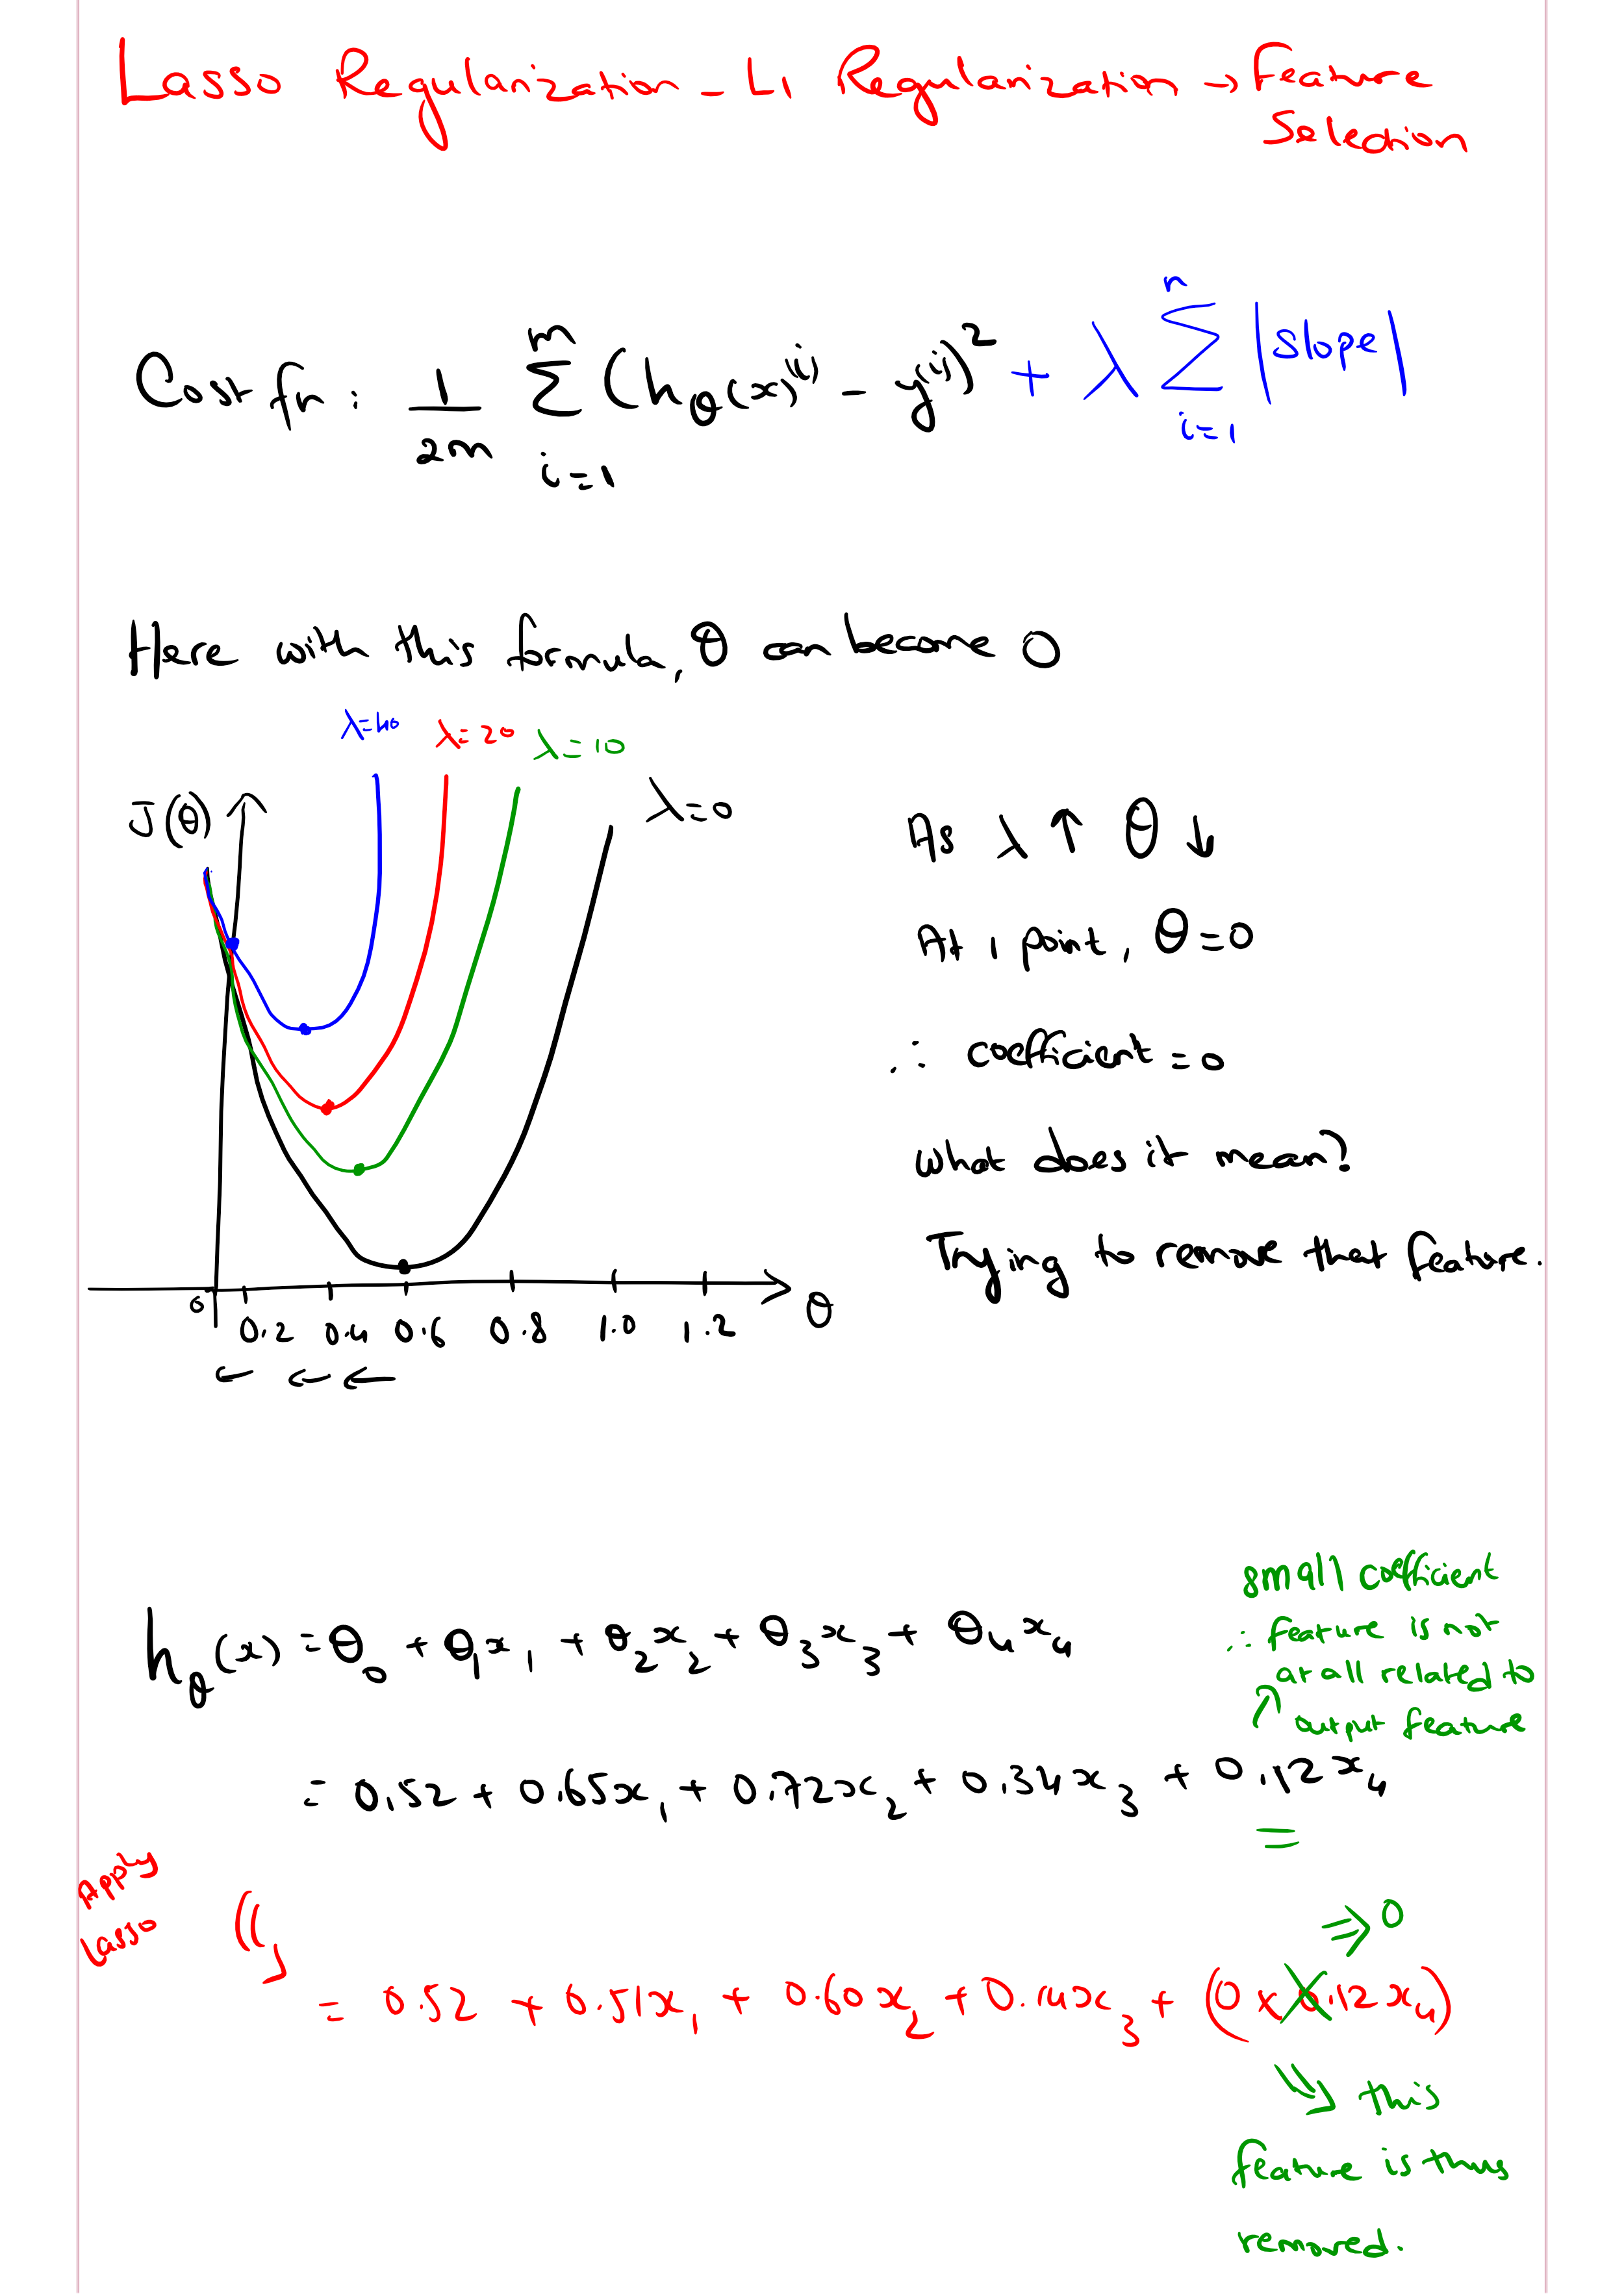 Lasso Regularization - L1 Regularization → Feature
Selection
Cost fn : 1/2m m Σ i=1 (hθ(x)⁽ⁱ⁾ - y⁽ⁱ⁾)² + λ n Σ i=1 |slope|
Here with this formula, θ can become 0
λ=40 λ=20 λ=10
λ=0
J(θ)
As λ ↑ θ ↓
At 1 point, θ=0
∴ coefficient = 0
what does it mean?
Trying to remove that feature.
0 0.2 0.4 0.6 0.8 1.0 1.2 θ
← ← ←
small coefficient
∴ feature is not
at all related to
output feature
hθ(x) = θ₀ + θ₁x₁ + θ₂x₂ + θ₃x₃ + θ₄x₄
= 0.52 + 0.65x₁ + 0.72x₂ + 0.34x₃ + 0.12x₄
Apply
Lasso
⇒ 0
= 0.52 + 0.51x₁ + 0.60x₂ + 0.14x₃ + (0 x 0.12x₄)
this
feature is thus
removed.